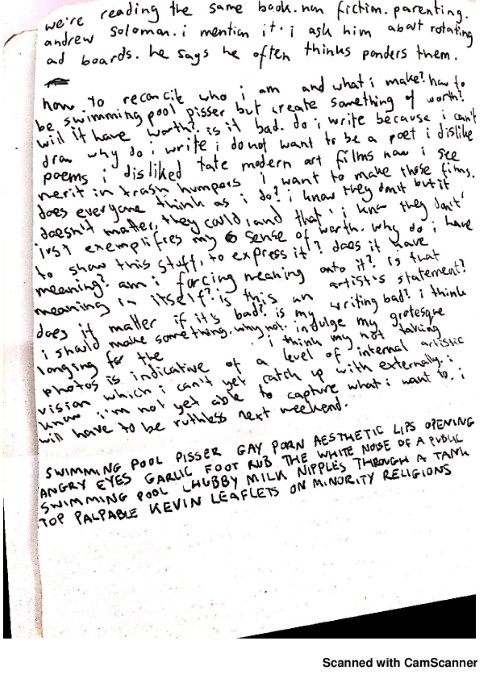 we're reading the same book. non fiction. parenting.
andrew soloman. i mention it. i ask him about rotating
ad boards. he says he often thinks ponders them.
how. to reconcile who i am and what i make? how to
be swimming pool pisser but create something of worth?
will it have worth? is it bad. do i write because i can't
draw why do i write i do not want to be a poet i dislike
poems i disliked tate modern art films now i see
merit in trash humpers i want to make those films.
does everyone think as i do? i know they dont but it
doesn't matter, they could, and that i know they don't
just exemplifies my sense of worth. why do i have
to show this stuff, to express it? does it have
meaning? am i forcing meaning onto it? is that
meaning in itself? is this an artist's statement?
does it matter if it's bad? is my writing bad? i think
i should make something. why not. indulge my grotesque
longing for the i think my not taking
photos is indicative of a level of internal artistic
vision which i can't yet catch up with externally. i
know i'm not yet able to capture what i want to. i
will have to be ruthless next weekend.
SWIMMING POOL PISSER GAY PORN AESTHETIC LIPS OPENING
ANGRY EYES GARLIC FOOT RUB THE WHITE NOISE OF A PUBLIC
SWIMMING POOL CHUBBY MILK NIPPLES THROUGH A TANK
TOP PALPABLE KEVIN LEAFLETS ON MINORITY RELIGIONS
Scanned with CamScanner